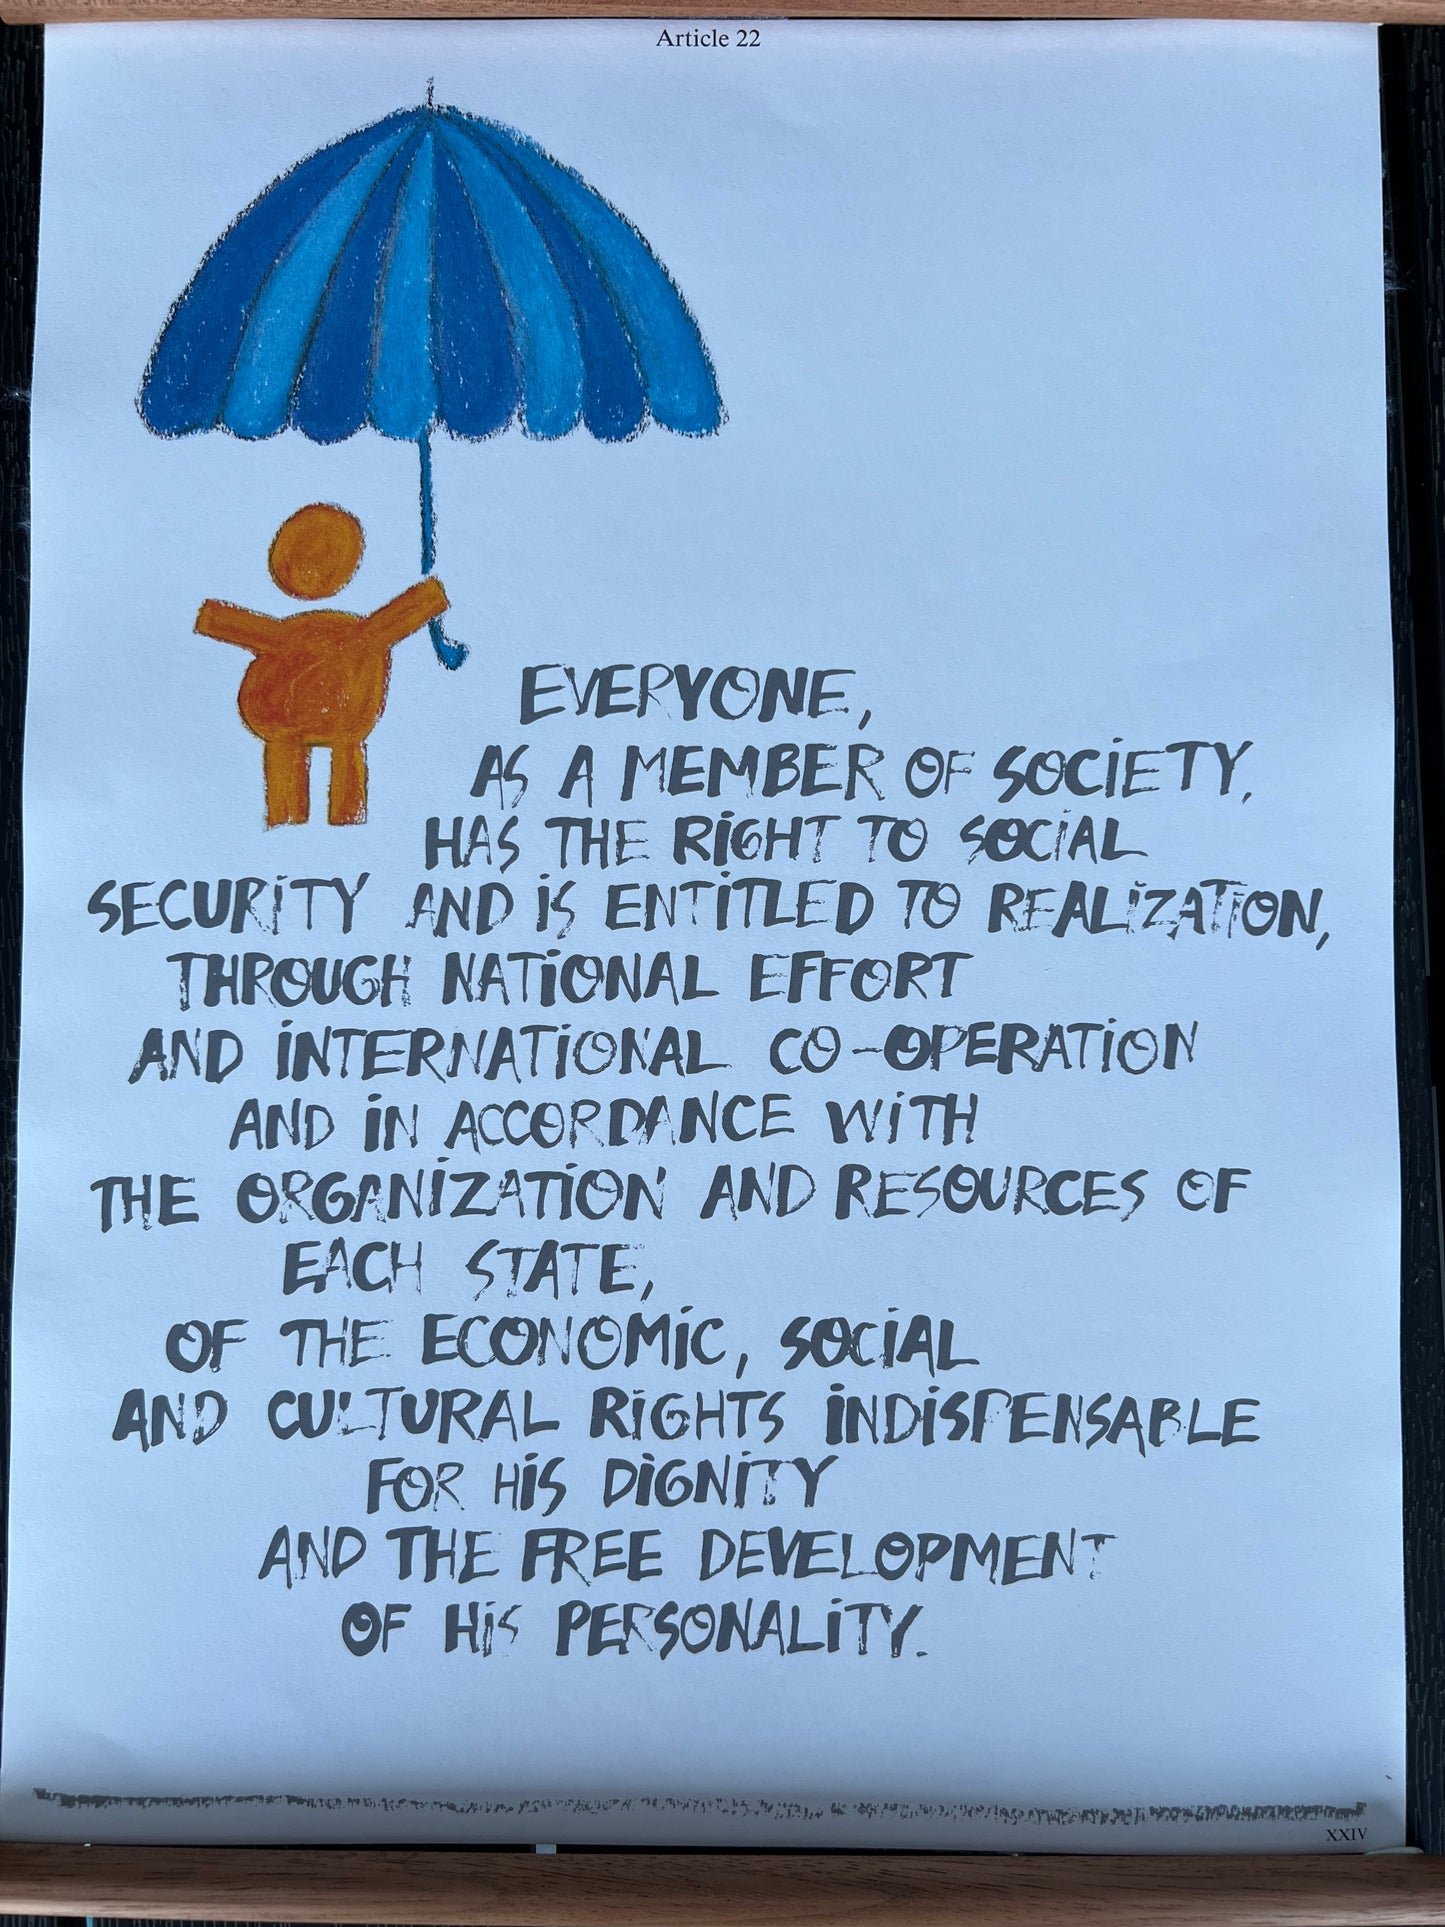 Article 22
EVERYONE,
AS A MEMBER OF SOCIETY,
HAS THE RIGHT TO SOCIAL
SECURITY AND IS ENTITLED TO REALIZATION,
THROUGH NATIONAL EFFORT
AND INTERNATIONAL CO-OPERATION
AND IN ACCORDANCE WITH
THE ORGANIZATION AND RESOURCES OF
EACH STATE,
OF THE ECONOMIC, SOCIAL
AND CULTURAL RIGHTS INDISPENSABLE
FOR HIS DIGNITY
AND THE FREE DEVELOPMENT
OF HIS PERSONALITY.
XXIV